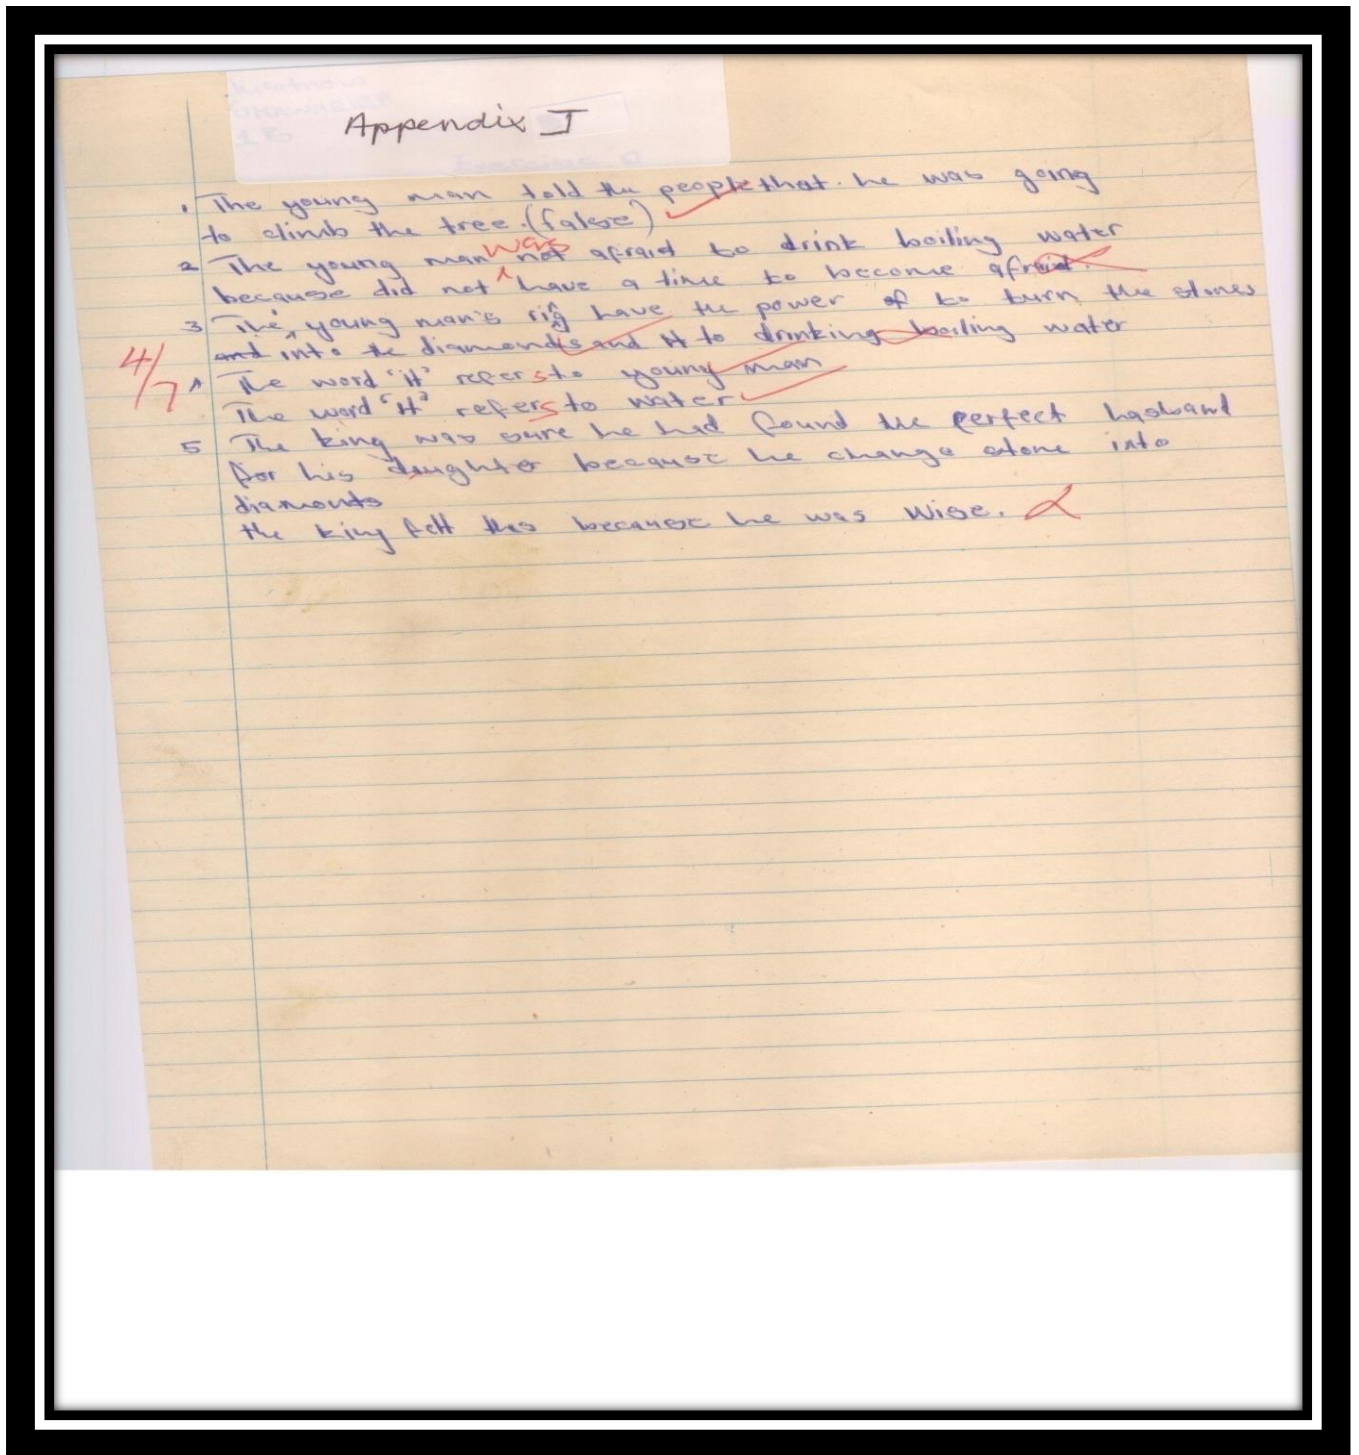 Appendix J
1 The young man told the people that. he was going
to climb the tree. (false)
was
2 The young man not afraid to drink boiling water
because did not have a time to become afraid.
3 The, young man's rig have the power of to turn the stones
and into the diamonds and it to drinking boiling water
4/7
The word "it" refers to young man
The word "it" refers to water
5 The king was sure he had found the perfect hasband
for his daughter because he change stone into
diamonds
the king felt this because he was wise.